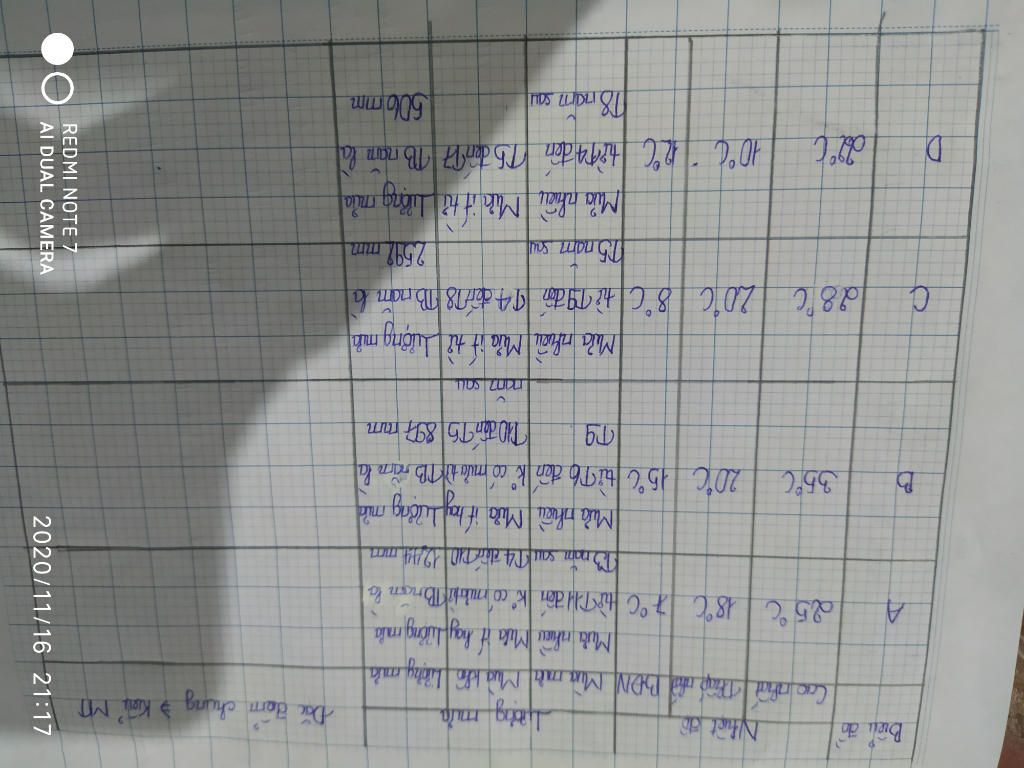 Biểu đồ
Nhiệt độ
Lượng mưa
Đặc điểm chung → Kiểu MT
Cao nhất
Thấp nhất
BĐN
Mùa mưa
Mùa khô
Lượng mưa
A
25°C
18°C
7°C
Mưa nhiều
từ T11 đến
T3 năm sau
Mưa ít hay
k° có mưa từ
T4 đến T10
Lượng mưa
TB năm là
1244 mm
B
35°C
20°C
15°C
Mưa nhiều
từ T6 đến
T9
Mưa ít hay
k° có mưa từ
T10 đến T5
năm sau
Lượng mưa
TB năm là
897 mm
C
28°C
20°C
8°C
Mưa nhiều
từ T9 đến
T5 năm sau
Mưa ít từ
T4 đến T8
Lượng mưa
TB năm là
2592 mm
D
22°C
10°C
12°C
Mưa nhiều
từ T4 đến
T8 năm sau
Mưa ít từ
T5 đến T7
Lượng mưa
TB năm là
506 mm
REDMI NOTE 7
AI DUAL CAMERA
2020/11/16 21:17